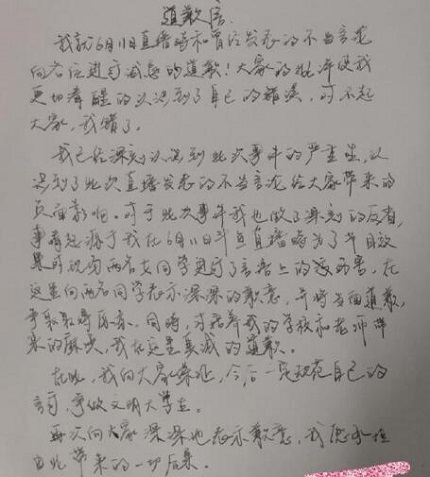 道歉信
我就6月11日直播时和曾经发表的不当言论
向各位进行诚恳的道歉！大家的批评使我
更加清醒的认识到了自己的错误，对不起
大家，我错了。
我已经深刻认识到此次事件的严重性，认
识到了此次直播发表的不当言论给大家带来的
负面影响。对于此次事件我也做了深刻的反省，
事情起源于我在6月11日斗鱼直播时为了节目效
果对现场两名女同学进行了言语上的伤害，在
这里向两名同学表示深深的歉意，并将当面道歉，
争取取得原谅。同时，对培养我的学校和老师带
来的麻烦，我在这里真诚的道歉。
在此，我向大家保证，今后一定规范自己的
言行，争做文明大学生。
再次向大家深深地表示歉意，我愿承担
由此带来的一切后果。